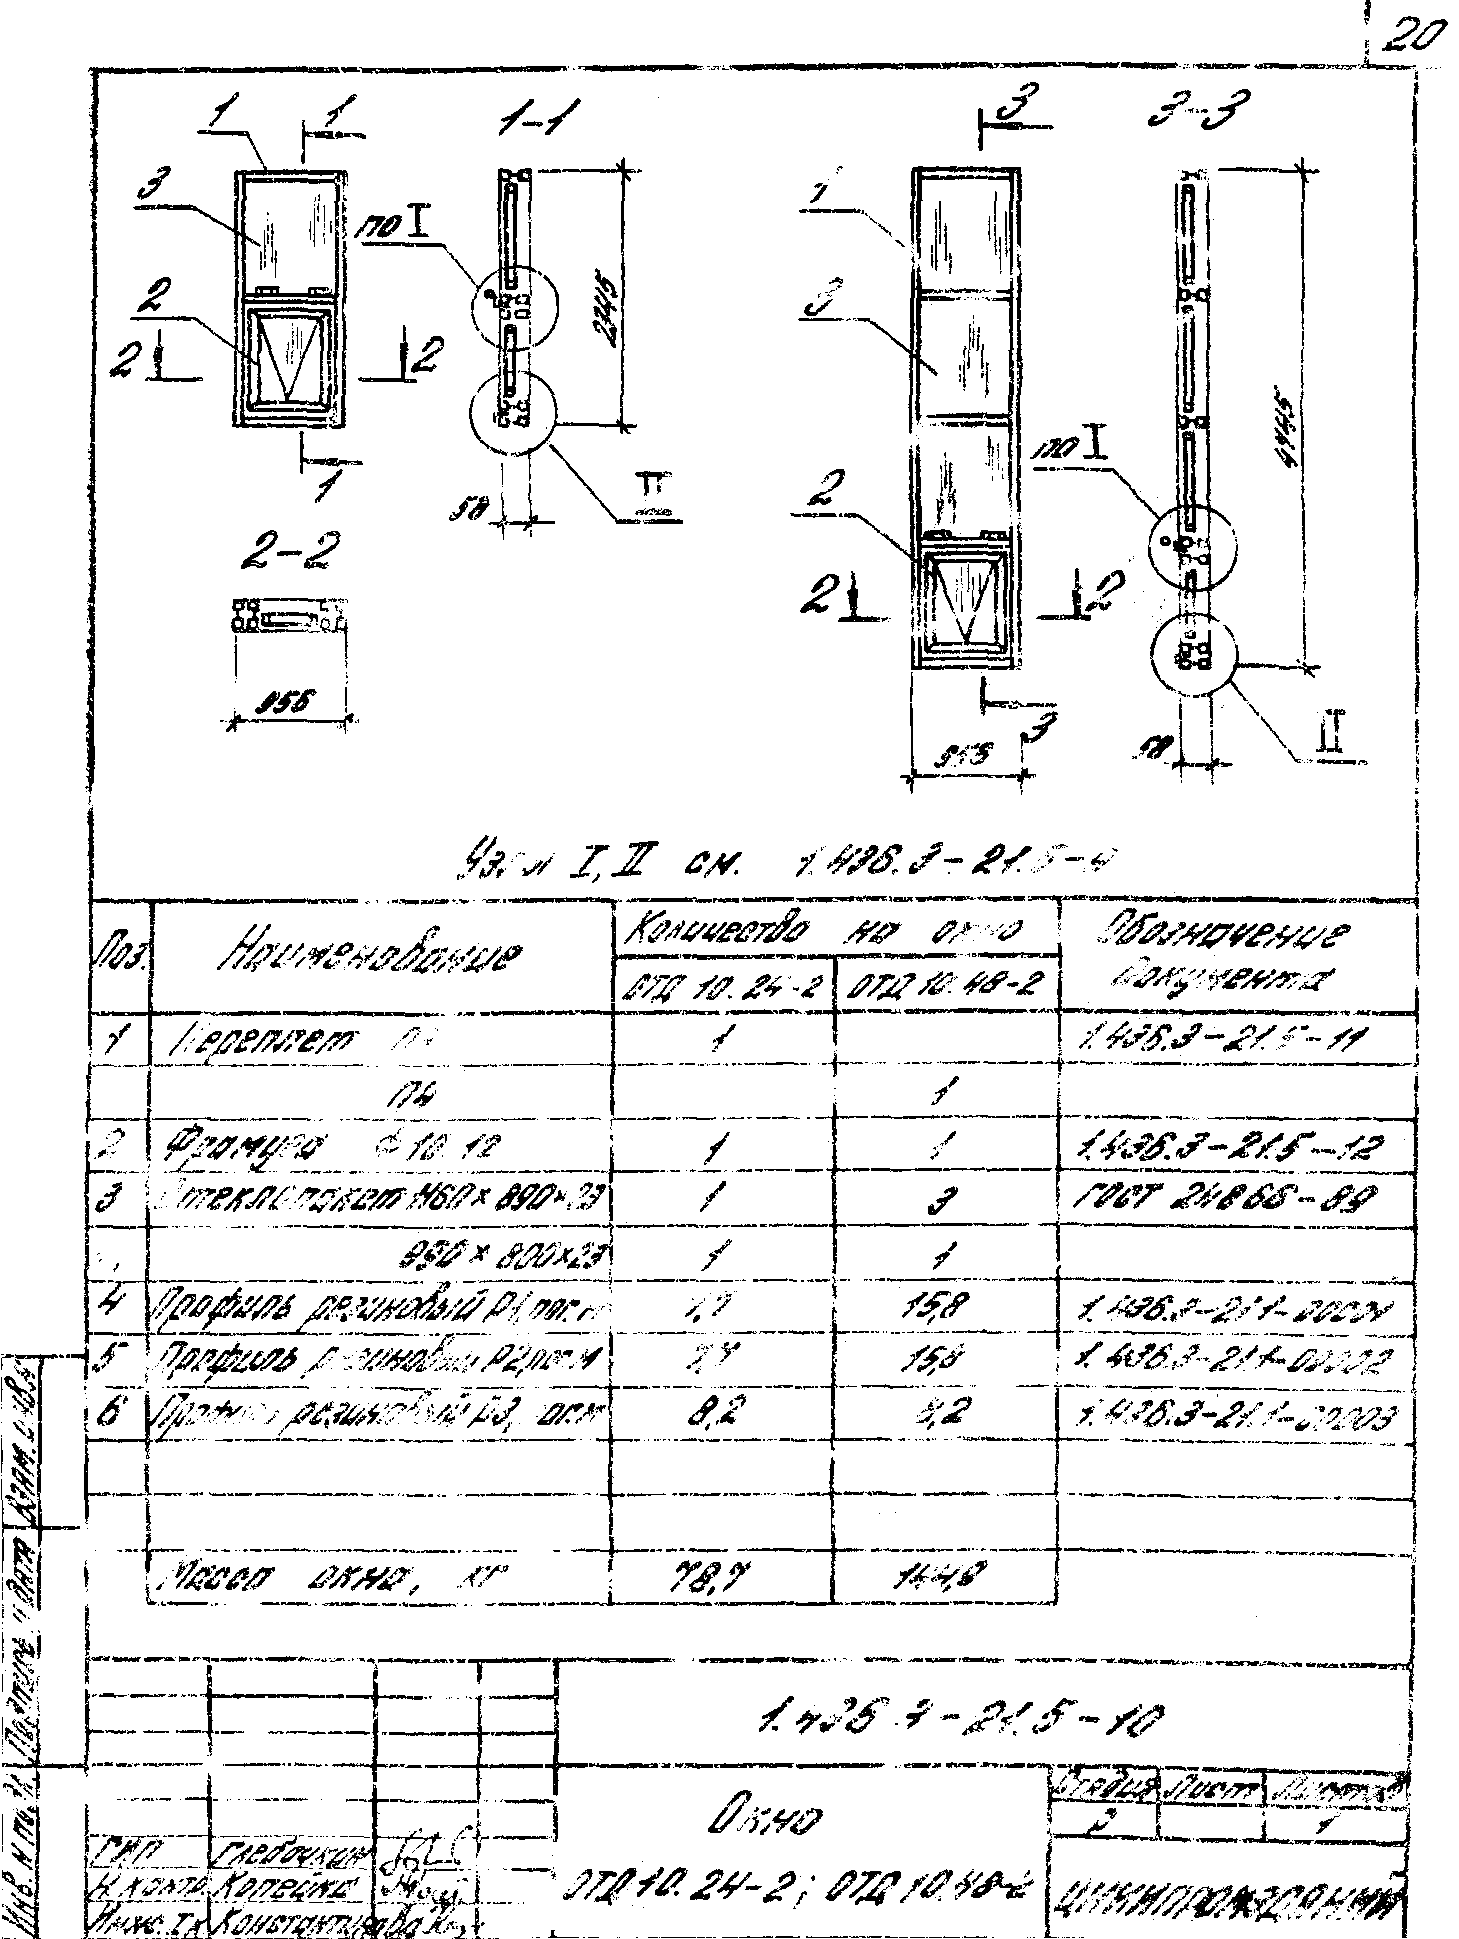 20
1 1 1-1
3
по I
2
2 2
2345
1
58
II
2-2
956
3 3-3
1
3
по I
4745
2
2 2
3
956
58
II
Узлы I, II см. 1.436.3-21.5-
Поз. Наименование Количество на окно Обозначение документа
ОТД 10.24-2 ОТД 10.48-2
1 Переплет 1 1.436.3-21.5-11
П4 1
2 Фрамуга Ф 10.12 1 1 1.436.3-21.5-12
3 Стеклопакет 1160×890×23 1 3 ГОСТ 24866-89
990×800×23 1 1
4 Профиль резиновый Р1, пог.м 7,7 15,8 1.436.3-21.1-00001
5 Профиль резиновый Р2, пог.м 7,7 15,8 1.436.3-21.1-00002
6 Профиль резиновый Р3, пог.м 8,2 8,2 1.436.3-21.1-00003
Масса окна, кг 78,7 144,8
1.436.3-21.5-10
Окно
ОТД 10.24-2; ОТД 10.48-2
Стадия Лист Листов
Р 1
ЦНИИПРОМЗДАНИЙ
ГИП Глебочкин
Н.контр. Копейко
Инж. I к Константинова
Инв. № подл. Подпись и дата Взам. инв. №